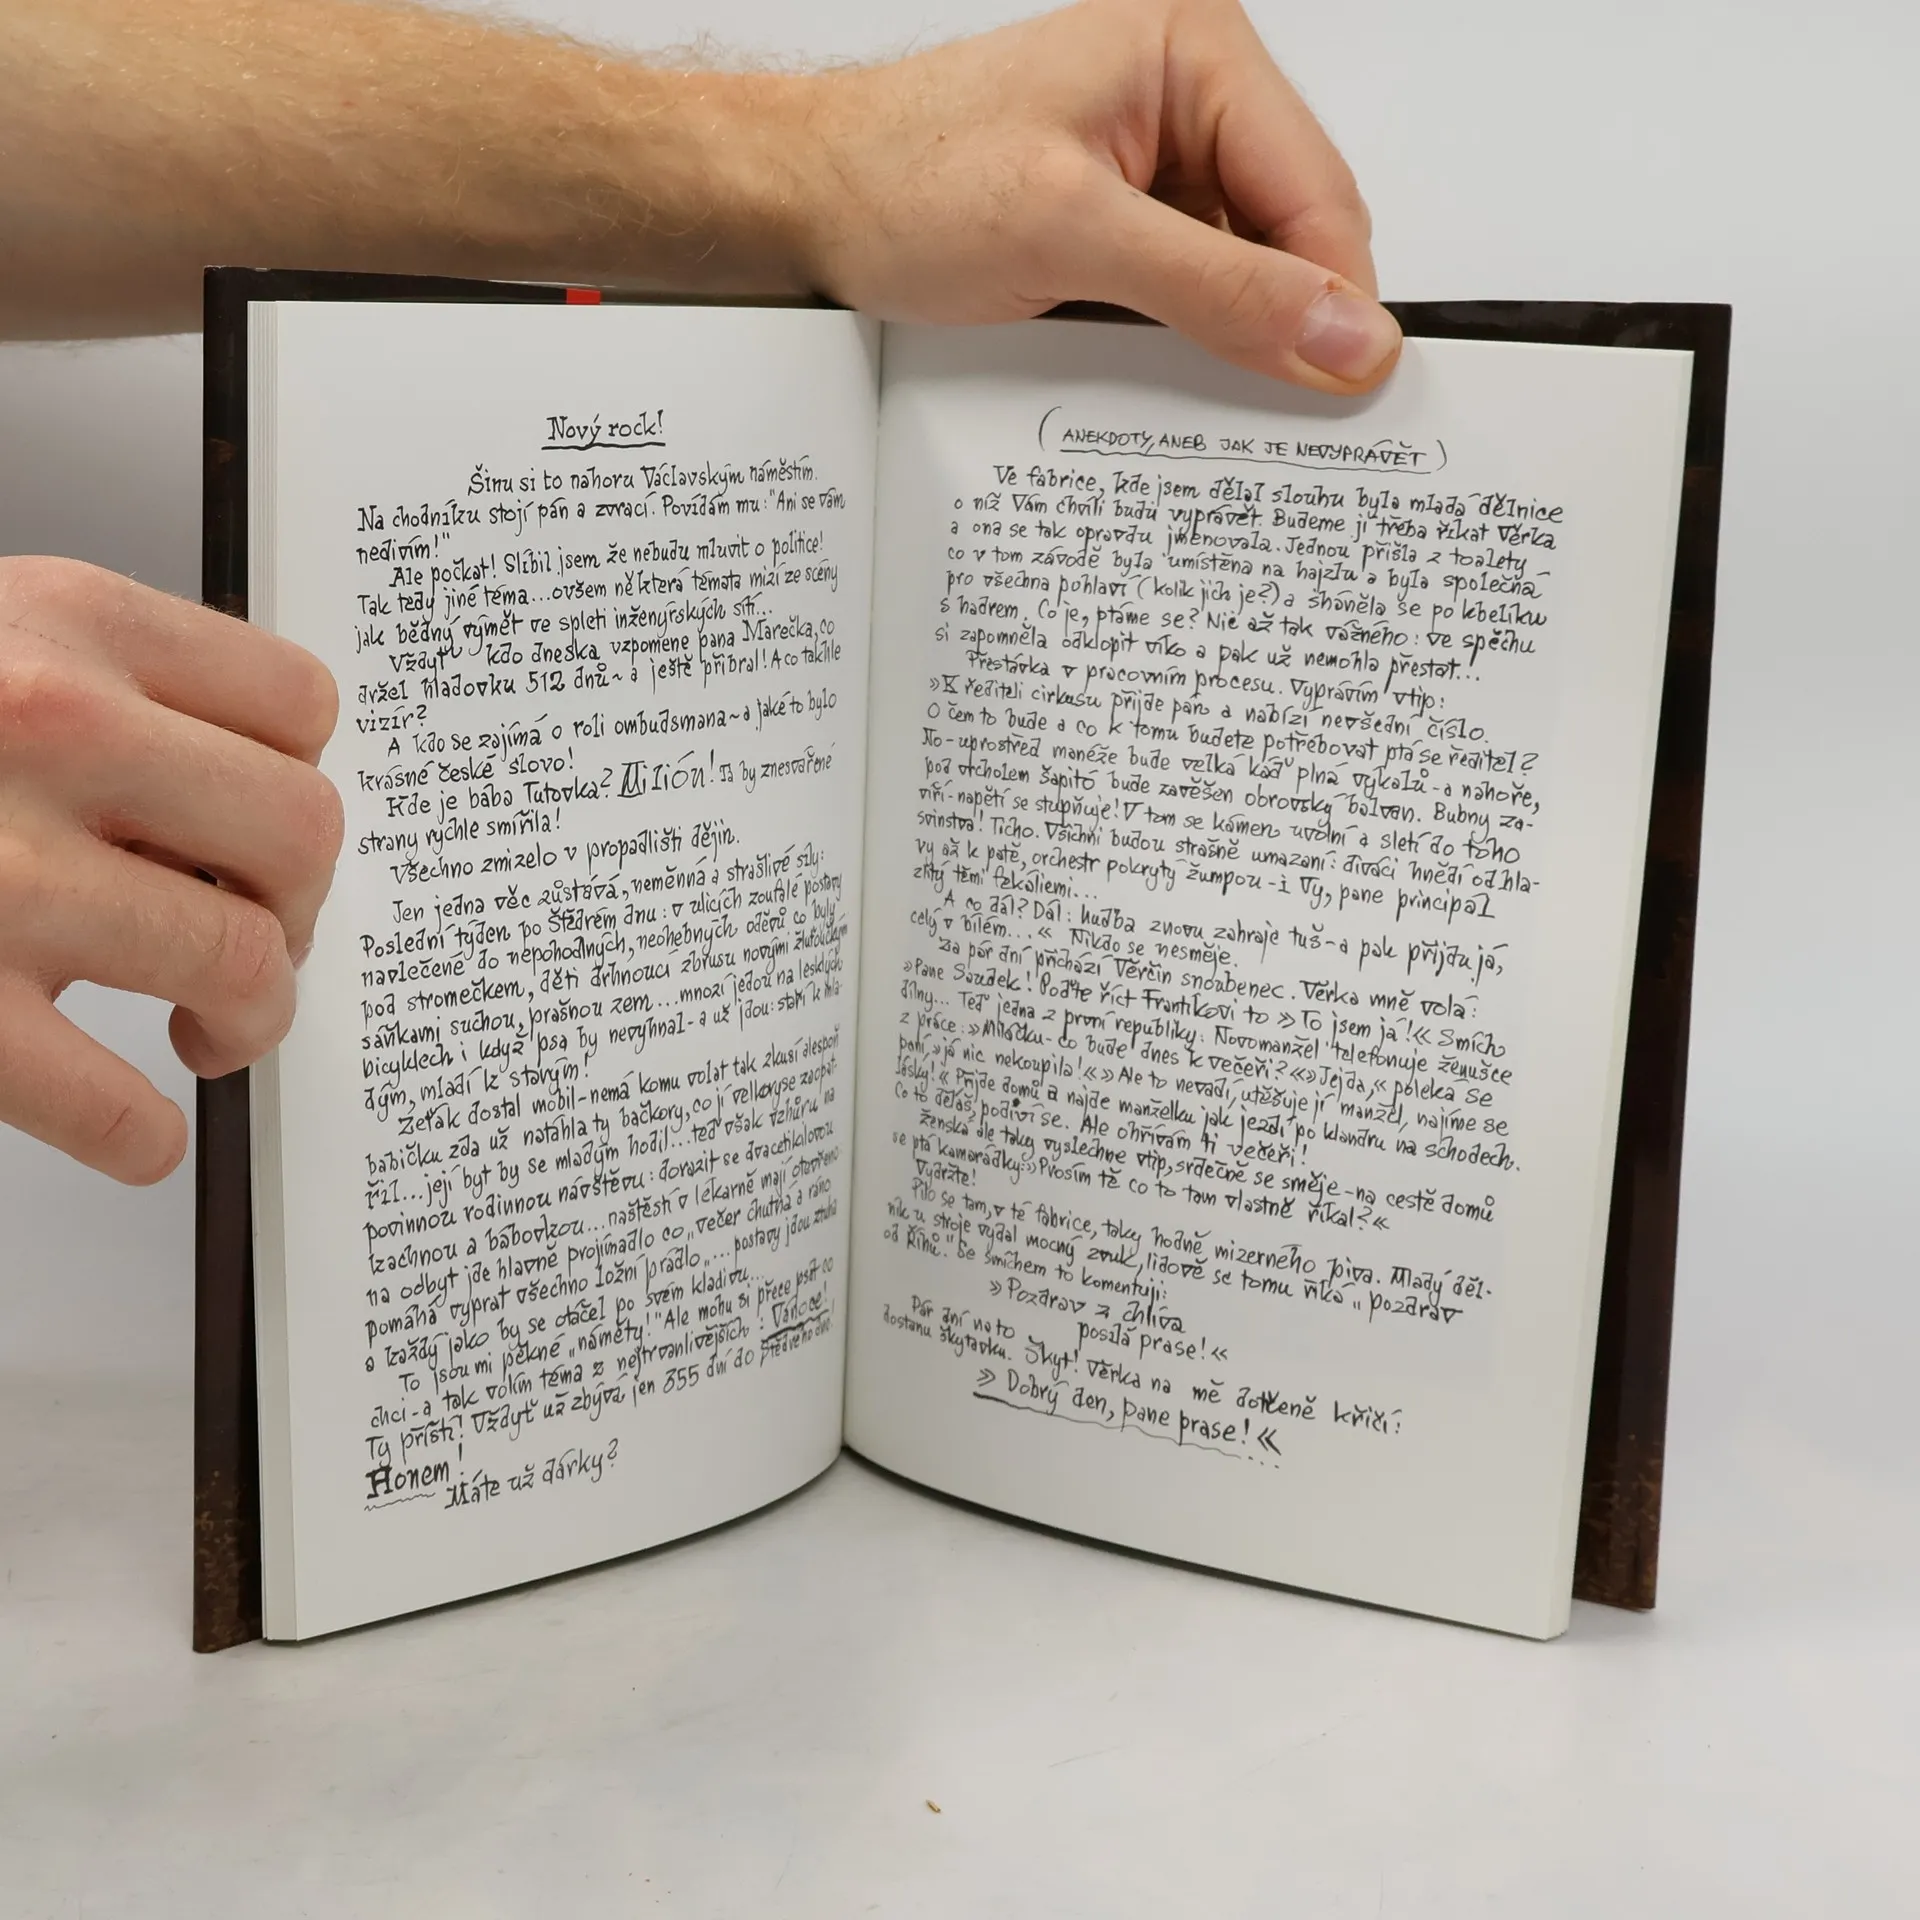 Nový rock!
Šinu si to nahoru Václavským náměstím.
Na chodníku stojí pán a zvrací. Povídám mu: "Ani se vám
nedivím!"
Ale počkat! Slíbil jsem že nebudu mluvit o politice!
Tak tedy jiné téma...ovšem některá témata mizí ze scény
jak bědný výmět ve spleti inženýrských sítí...
Vždyť kdo dneska vzpomene pana Marečka, co
držel hladovku 512 dnů~a ještě přibral! A co takhle
vizír?
A kdo se zajímá o roli ombudsmana~a jaké to bylo
krásné české slovo!
Kde je bába Tutovka? Milión! Ta by znesvářené
strany rychle smířila!
Všechno zmizelo v propadlišti dějin.
Jen jedna věc zůstává, neměnná a strašlivé síly:
Poslední týden po Štědrém dnu: v ulicích zoufalé postavy
navlečené do nepohodlných, neohebných oděvů co byly
pod stromečkem, děti drhnoucí zbrusu novými žluťoučkými
sáňkami suchou, prašnou zem...mnozí jedou na lesklých
bicyklech i když psa by nevyhnal-a už jdou: staří k mla-
dým, mladí k starým!
Zeťák dostal mobil-nemá komu volat tak zkusí alespoň
babičku zda už natáhla ty bačkory, co jí velkoryse zaopat-
řil...její byt by se mladým hodil...teď však vzhůru na
povinnou rodinnou návštěvu: dorazit se dvacetikilovou
kachnou a bábovkou...naštěstí v lékárně mají otevřeno
na odbyt jde hlavně projímadlo co „večer chutná a ráno
pomáhá vyprat všechno ložní prádlo„... postavy jdou ztuha
a každý jako by se otáčel po svém kladivu...
To jsou mi pěkné „náměty!" Ale mohu si přece psát co
chci-a tak volím téma z nejtrvanlivějších: Vánoce!
Ty příští! Vždyť už zbývá jen 355 dní do Štědrého dne!
Honem!
Máte už dárky?
(ANEKDOTY, ANEB JAK JE NEVYPRÁVĚT)
Ve fabrice, kde jsem dělal slouhu byla mladá dělnice
o níž Vám chvíli budu vyprávět. Budeme jí třeba říkat Věrka
a ona se tak opravdu jmenovala. Jednou přišla z toalety
co v tom závodě byla umístěna na hajzlu a byla společná
pro všechna pohlaví (kolik jich je?) a sháněla se po kbelíku
s hadrem. Co je, ptáme se? Nic až tak vážného: ve spěchu
si zapomněla odklopit víko a pak už nemohla přestat!
Přestávka v pracovním procesu. Vyprávím vtip:
»K řediteli cirkusu přijde pán a nabízí nevšední číslo.
O čem to bude a co k tomu budete potřebovat ptá se ředitel?
No-uprostřed manéže bude velká káď plná výkalů-a nahoře,
pod vrcholem šapitó bude zavěšen obrovský balvan. Bubny za-
víří-napětí se stupňuje! V tom se kámen uvolní a sletí do toho
svinstva! Ticho. Všichni budou strašně umazaní: diváci hnědí od hla-
vy až k patě, orchestr pokrytý žumpou-i Vy, pane principál
zlitý těmi fekáliemi...
A co dál? Dál: hudba znovu zahraje tuš-a pak přijdu já,
celý v bílém...« Nikdo se nesměje.
Za pár dní přichází Věrčin snoubenec. Věrka mně volá:
»Pane Saudek! Poďte říct Frantíkovi to »To jsem já!«« Smích
dílny... Teď jedna z první republiky: Novomanžel telefonuje ženušce
z práce: »Miláčku-co bude dnes k večeři?«»Jejda,« poleká se
paní, »já nic nekoupila!«»Ale to nevadí, utěšuje jí manžel, najíme se
lásky!« Přijde domů a najde manželku jak jezdí po klandru na schodech.
Co to děláš, podiví se. Ale ohřívám ti večeři!
Ženská ale taky vyslechne vtip, srdečně se směje-na cestě domů
se ptá kamarádky: »Prosím tě co to tam vlastně říkal?«
Vydržte!
Pilo se tam, v té fabrice, taky hodně mizerného piva. Mladý děl-
ník u stroje vydal mocný zvuk, lidově se tomu říká „pozdrav
od Říhů." Se smíchem to komentuji:
»Pozdrav z chlíva
posílá prase!«
Pár dní na to
dostanu škytavku. Škyt! Věrka na mě dotčeně křičí:
»Dobrý den, pane prase!«
...